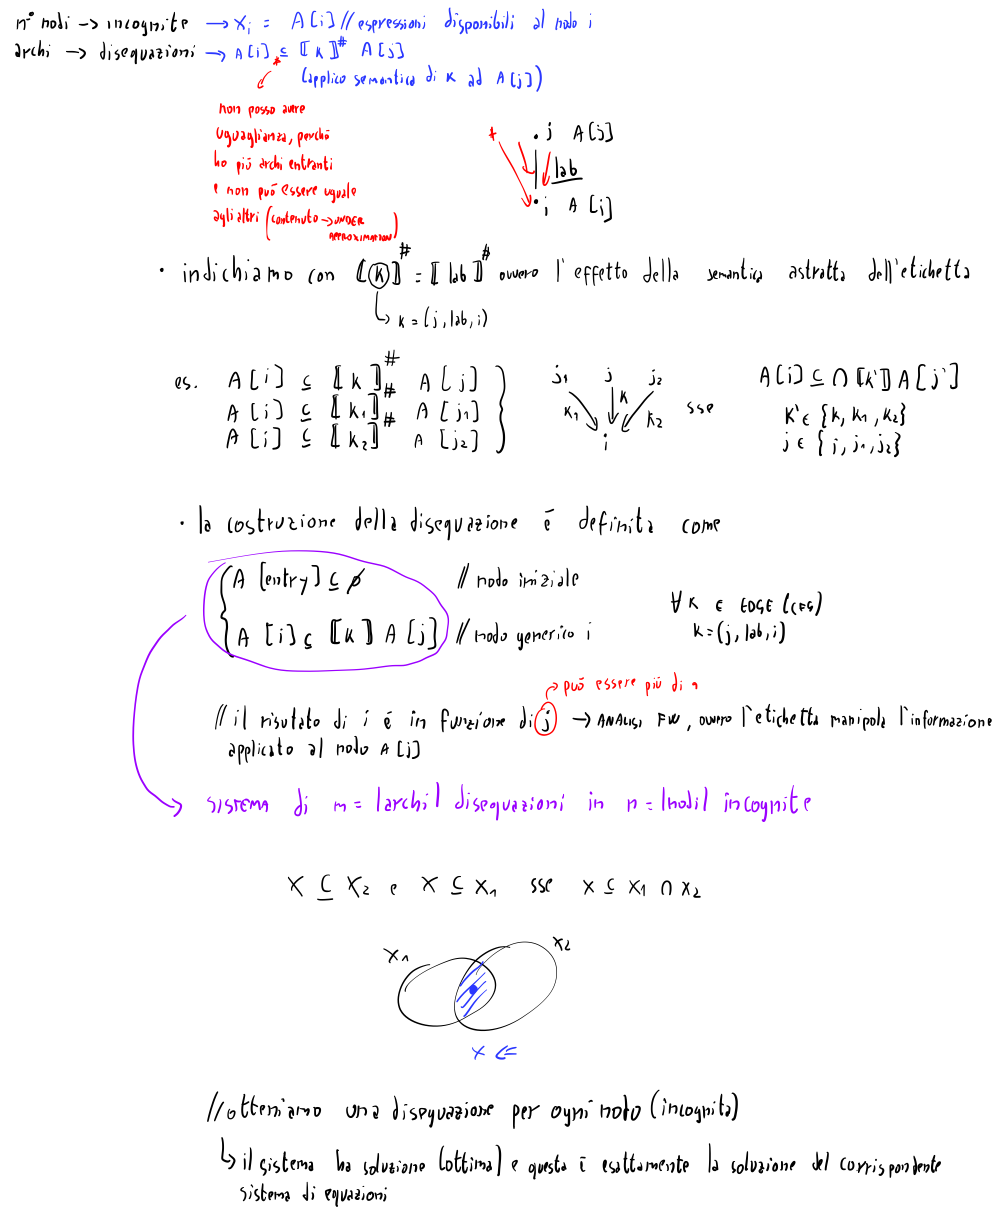 n° nodi → incognite → xᵢ = A[i] // espressioni disponibili al nodo i
archi → disequazioni → A[i] ⊆ ⟦k⟧# A[j]
(applico semantica di k ad A[j])
*
non posso avere
uguaglianza, perché
ho più archi entranti
e non può essere uguale
agli altri (contenuto → UNDER
APPROXIMATION)
*
j A[j]
lab
i A[i]
• indichiamo con ⟦k⟧# = ⟦lab⟧# ovvero l'effetto della semantica astratta dell'etichetta
↳ k = (j, lab, i)
es. A[i] ⊆ ⟦k⟧# A[j]
A[i] ⊆ ⟦k₁⟧# A[j₁]
A[i] ⊆ ⟦k₂⟧# A[j₂]
j₁ j j₂
k₁ k k₂
i
sse
A[i] ⊆ ∩ ⟦k'⟧ A[j']
k' ∈ {k, k₁, k₂}
j ∈ {j, j₁, j₂}
• la costruzione della disequazione è definita come
A [entry] ⊆ ∅ // nodo iniziale
A [i] ⊆ ⟦k⟧ A[j] // nodo generico i
∀ k ∈ EDGE (CFG)
k = (j, lab, i)
→ può essere più di 1
// il risutato di i è in funzione di j → ANALISI FW, ovvero l'etichetta manipola l'informazione
applicato al nodo A[j]
→ SISTEMA di m = |archi| disequazioni in n = |nodi| incognite
x ⊆ x₂ e x ⊆ x₁ sse x ⊆ x₁ ∩ x₂
x₁ x₂
x ⇐
// otteniamo una disequazione per ogni nodo (incognita)
↳ il sistema ha soluzione (ottima) e questa è esattamente la soluzione del corrispondente
sistema di equazioni